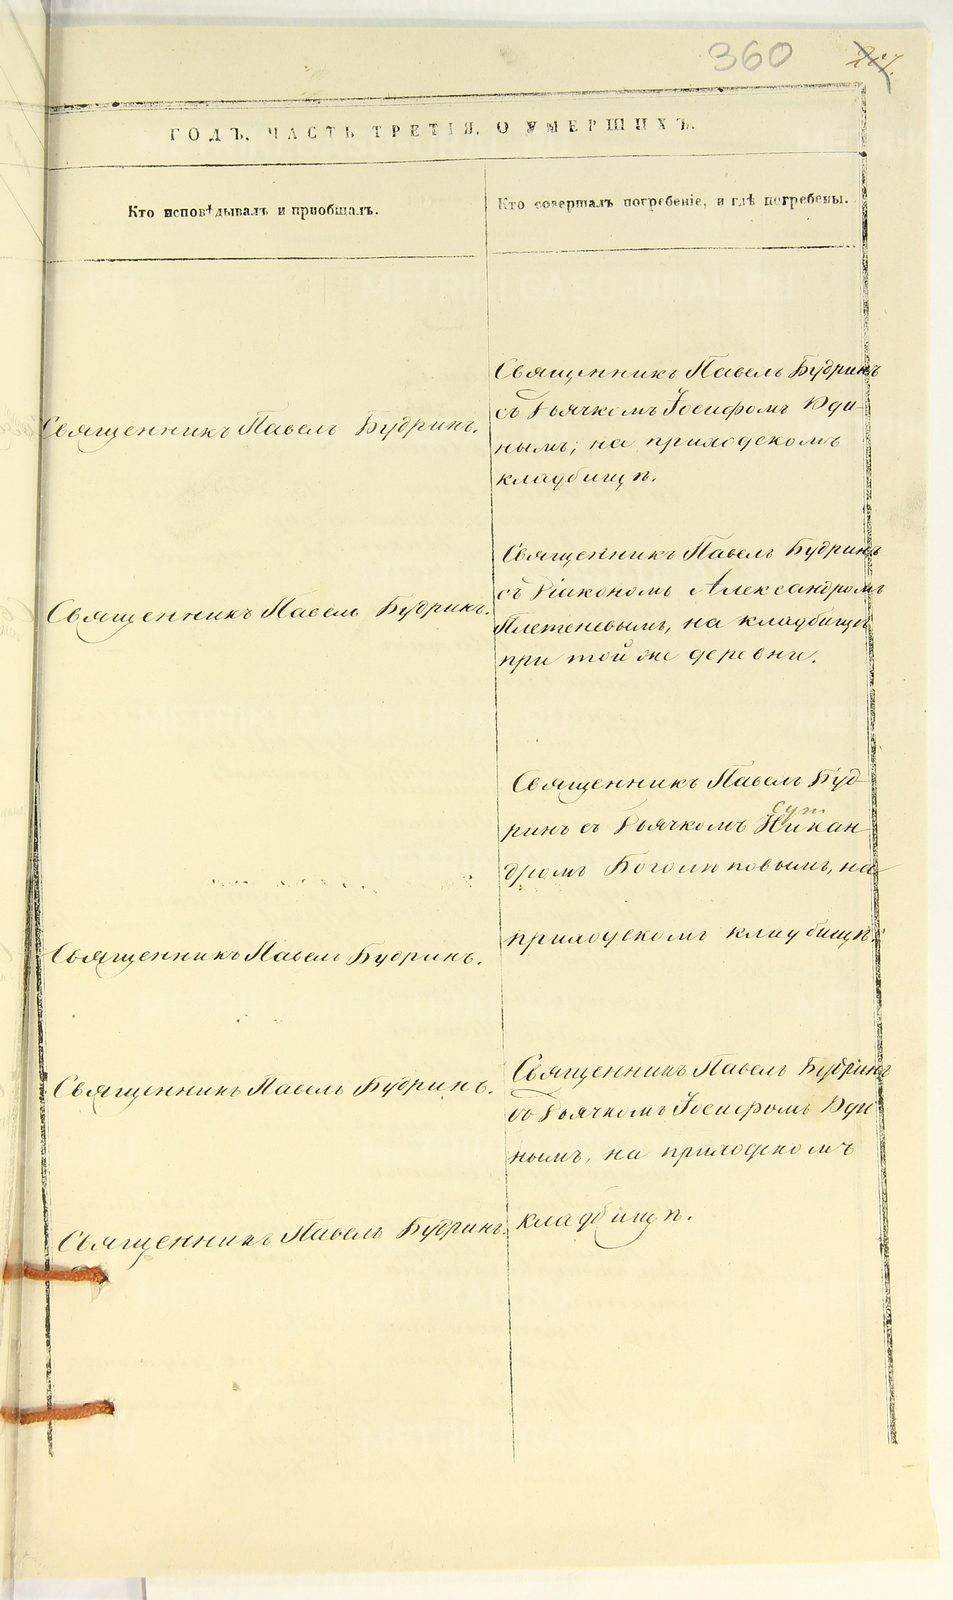 360
ГОДЪ, ЧАСТЬ ТРЕТІЯ, О УМЕРШИХЪ.
Кто исповѣдывалъ и пріобщалъ.
Кто совершалъ погребеніе, и гдѣ погребены.
Священникъ Павелъ Будринъ.
Священникъ Павелъ Будринъ
съ Дьячкомъ Іосифомъ Юди-
нымъ; на приходскомъ
кладбищѣ.
Священникъ Павелъ Будринъ.
Священникъ Павелъ Будринъ
съ Діакономъ Александромъ
Плетеневымъ, на кладбищѣ
при той же деревни.
Священникъ Павелъ Будринъ.
Священникъ Павелъ Буд-
ринъ съ Дьячкомъ Никан-
дромъ Боголюповымъ, на
приходскомъ кладбищѣ.
Священникъ Павелъ Будринъ.
Священникъ Павелъ Будринъ
съ Дьячкомъ Іосифомъ Юди-
нымъ, на приходскомъ
кладбищѣ.
Священникъ Павелъ Будринъ.
METRIKI.GASO-URAL.RU